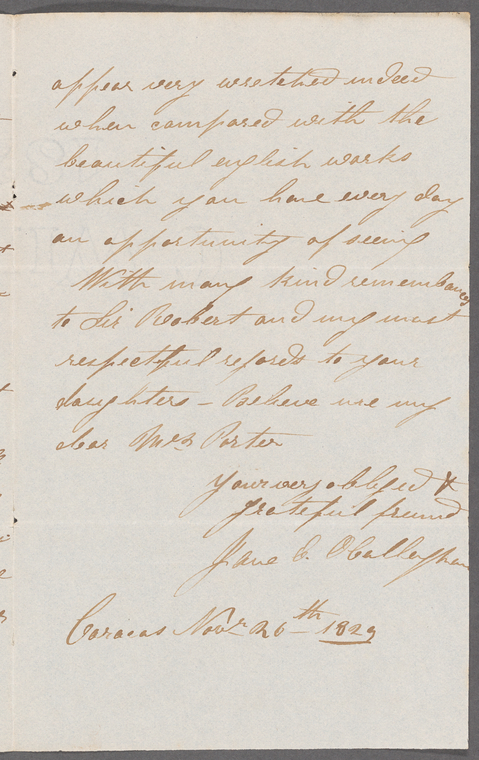 appear very wretched indeed
when compared with the
beautiful english works
which you have every day
an opportunity of seeing
With many kind remembances
to Sir Robert and my most
respectful regards to your
daughters – Believe me my
dear Mrs Porter
your very obliged &
grateful friend
Jane S. OCallaghan
Caracas Novr 26th 1829